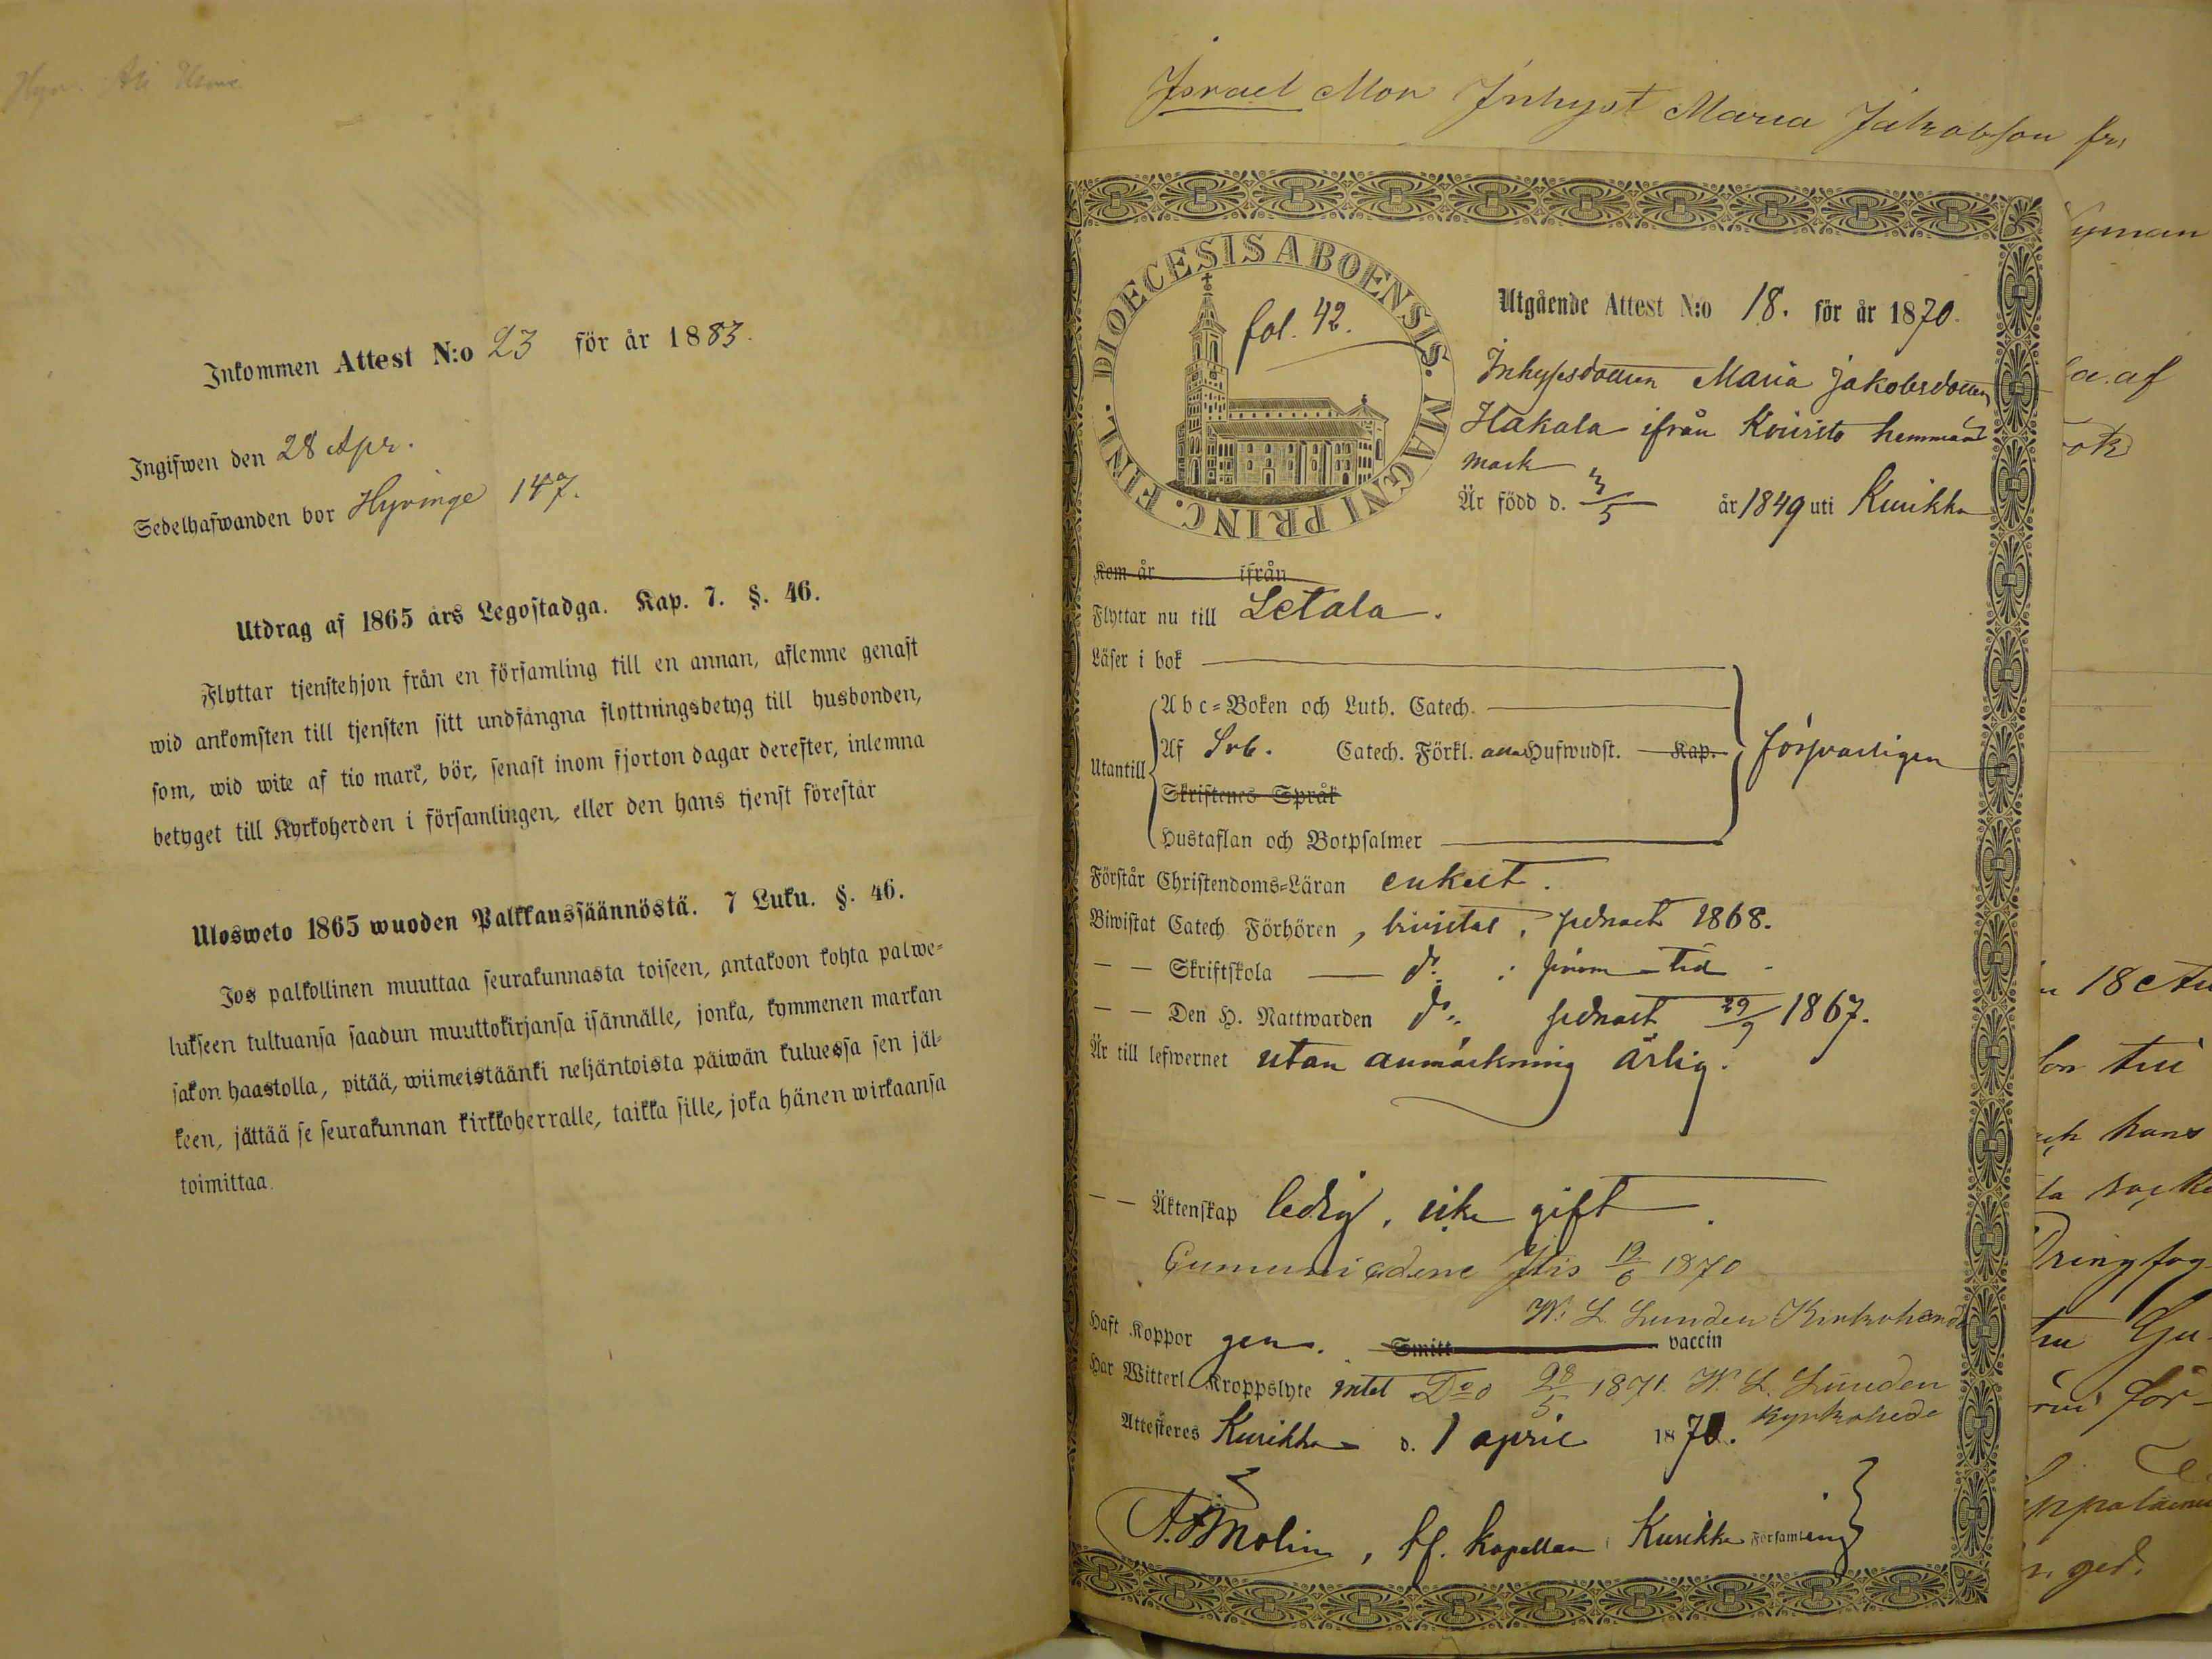 Inkommen Attest N:o 23 för år 1883.
Ingifwen den 28 Apr.
Sedelhafwanden bor Hyvinge 147.
Utdrag af 1865 års Legostadga. Kap. 7. §. 46.
Flyttar tjenstehjon från en församling till en annan, aflemne genast
wid ankomsten till tjensten sitt undfångna flyttningsbetyg till husbonden,
som, wid wite af tio mark, bör, senast inom fjorton dagar derefter, inlemna
betyget till Kyrkoherden i församlingen, eller den hans tjenst förestår
Ulosweto 1865 wuoden Palkkaussäännöstä. 7 Luku. §. 46.
Jos palkollinen muuttaa seurakunnasta toiseen, antakoon kohta palwe-
lukseen tultuansa saadun muuttokirjansa isännälle, jonka, kymmenen markan
sakon haastolla, pitää, wiimeistäänki neljäntoista päiwän kuluessa sen jäl-
keen, jättää se seurakunnan kirkkoherralle, taikka sille, joka hänen wirkaansa
toimittaa.
Israel Mon Inhyst Maria Jakobson
DIOECESIS ABOENSIS. MAGNI PRINC. FINL.
fol. 42.
Utgående Attest N:o 18. för år 1870.
Inhysesdottren Maria Jakobsdotter
Hakala ifrån Koivisto hemmans
mark
Är född d. 3/5 år 1849 uti Kurikka
Kom år ifrån
Flyttar nu till Letala.
Läser i bok
Utantill
Abc-Boken och Luth. Catech.
Af Svb. Catech. Förkl. alla Hufwudst. Kap.
Skriftenes Språk
Hustaflan och Botpsalmer
försvarligen
Förstår Christendoms-Läran enkelt.
Biwistat Catech Förhören, bivistat, sednast 1868.
— — Skriftskola — d:o i sinom tid
— — Den H. Nattwarden d:o sednast 29/9 1867.
Är till lefwernet utan anmärkning ärlig.
— — Äktenskap ledig, icke gift.
12/6 1870
W. L. Lunden Kyrkoherde
Haft Koppor gen. Smitt vaccin
Har Witterl. Kroppslyte intet D:o 28/5 1871. W. L. Lunden
Kyrkoherde
Attesteres Kurikka d. 1 april 1870.
A. F. Molin, tf. kapellan i Kurikka Församling
yman
a. af
18
till
hans
för-